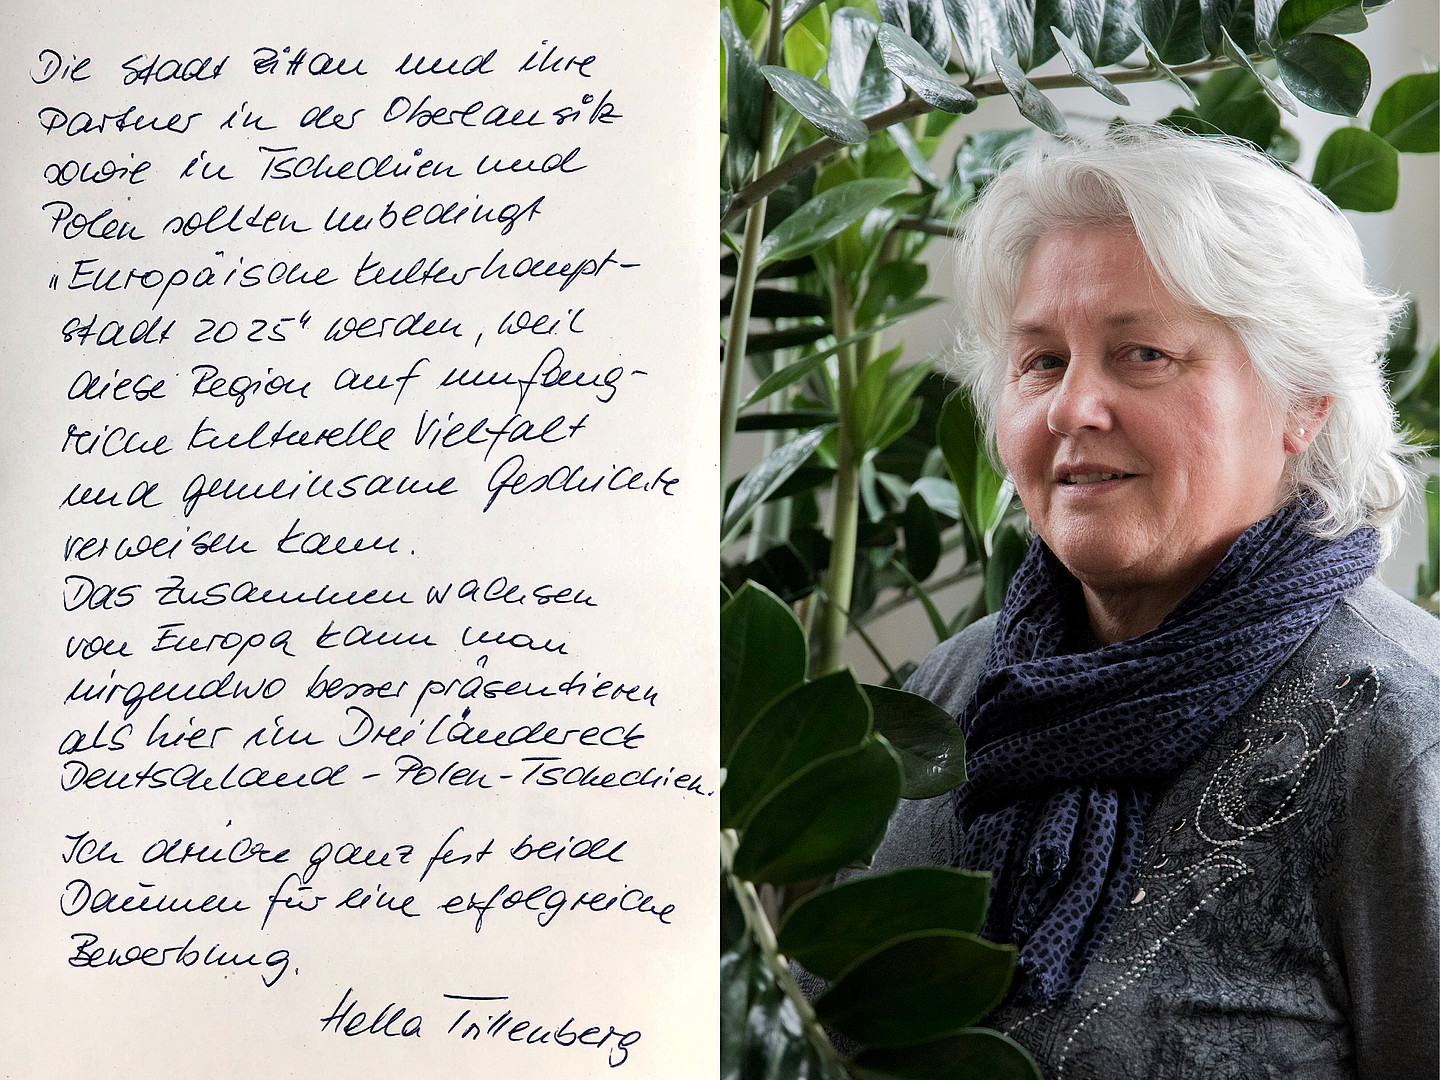 Die Stadt Zittau und ihre
Partner in der Oberlausitz
sowie in Tschechien und
Polen sollten unbedingt
„Europäische Kulturhaupt-
stadt 2025“ werden, weil
diese Region auf umfang-
reiche kulturelle Vielfalt
und gemeinsame Geschichte
verweisen kann.
Das Zusammenwachsen
von Europa kann man
nirgendwo besser präsentieren
als hier im Dreiländereck
Deutschland - Polen - Tschechien.
Ich drücke ganz fest beide
Daumen für eine erfolgreiche
Bewerbung.
Hella Trillenberg